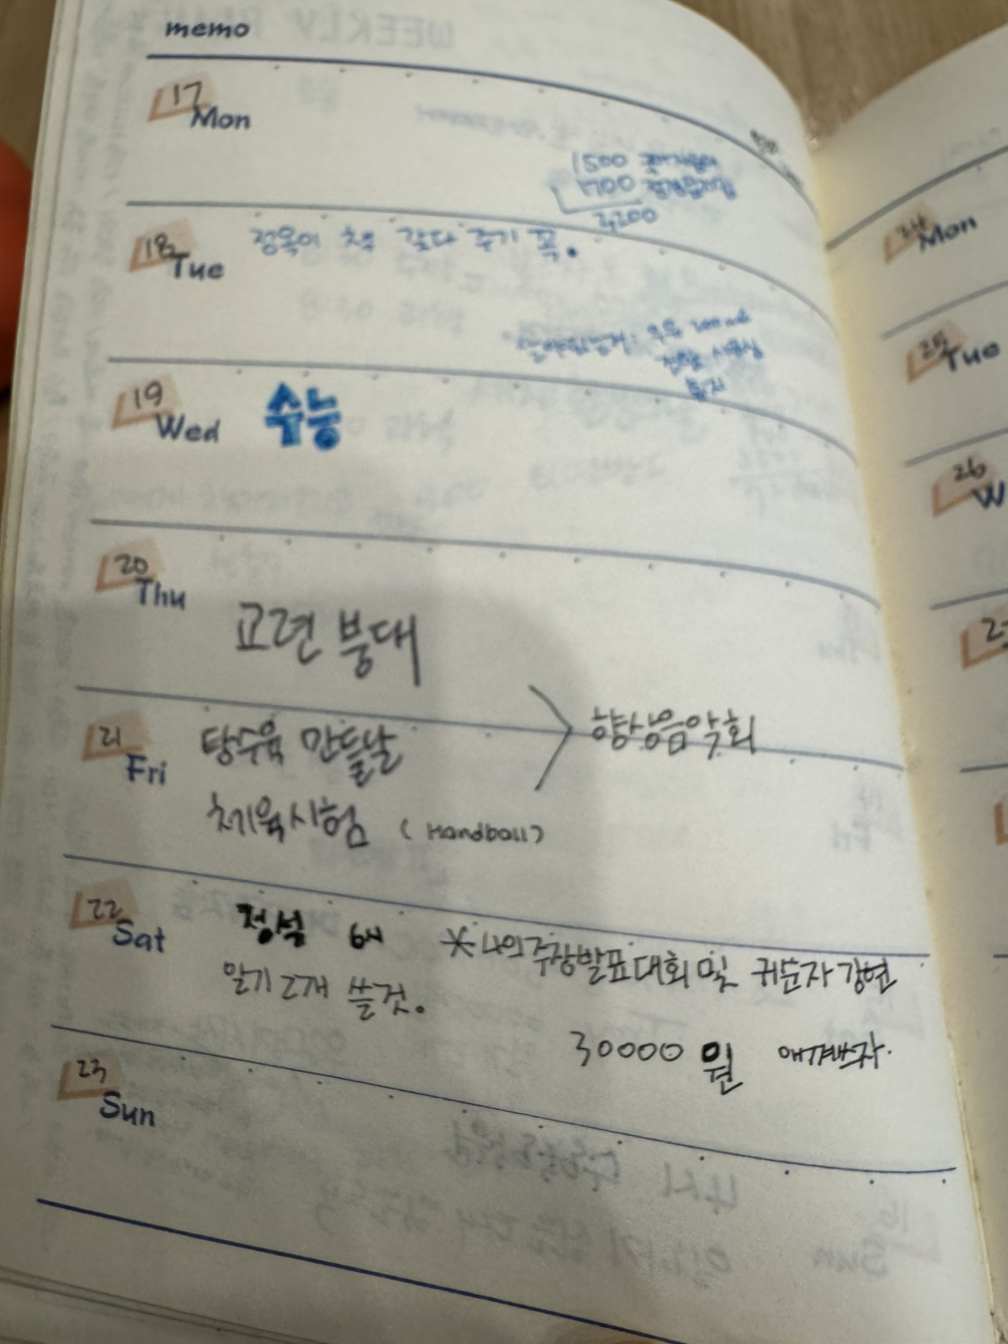 memo
17 Mon
1500
1700
3,200
18 Tue 정옥이 책 갖다 주기 꼭.
19 Wed 수능
20 Thu
교련 붕대
21 Fri 탕수육 만들날
향상음악회
체육시험 (Handball)
22 Sat 정석
*나의주장발표대회 및 귀순자 강연
일기 2개 쓸것.
30000 원
23 Sun
24 Mon
25 Tue
26 W